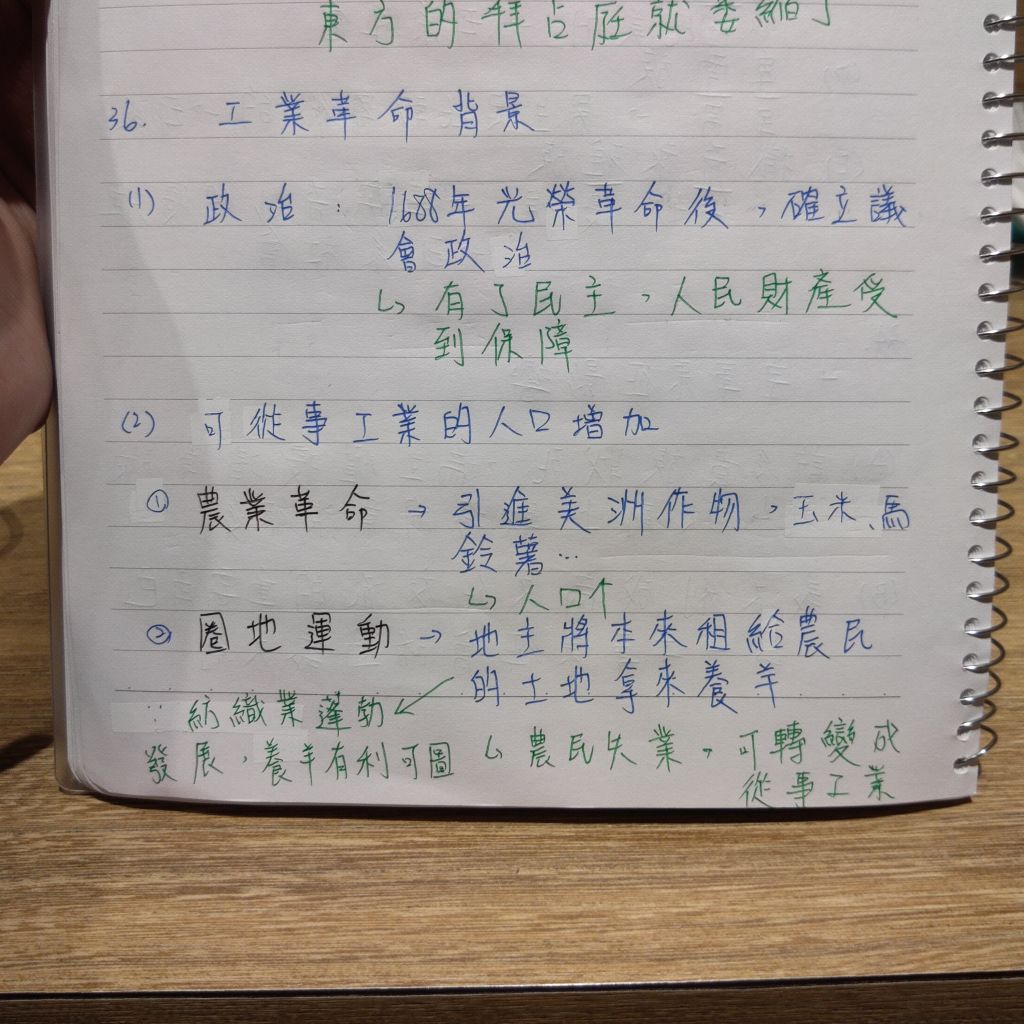 東方的拜占庭就萎縮了
36. 工業革命背景
(1) 政治：1688年光榮革命後，確立議
會政治
↳有了民主，人民財產受
到保障
(2) 可從事工業的人口增加
① 農業革命 → 引進美洲作物，玉米、馬
鈴薯…
↳人口↑
② 圈地運動 → 地主將本來租給農民
的土地拿來養羊
∵紡織業蓬勃
發展，養羊有利可圖
↳農民失業，可轉變成
從事工業